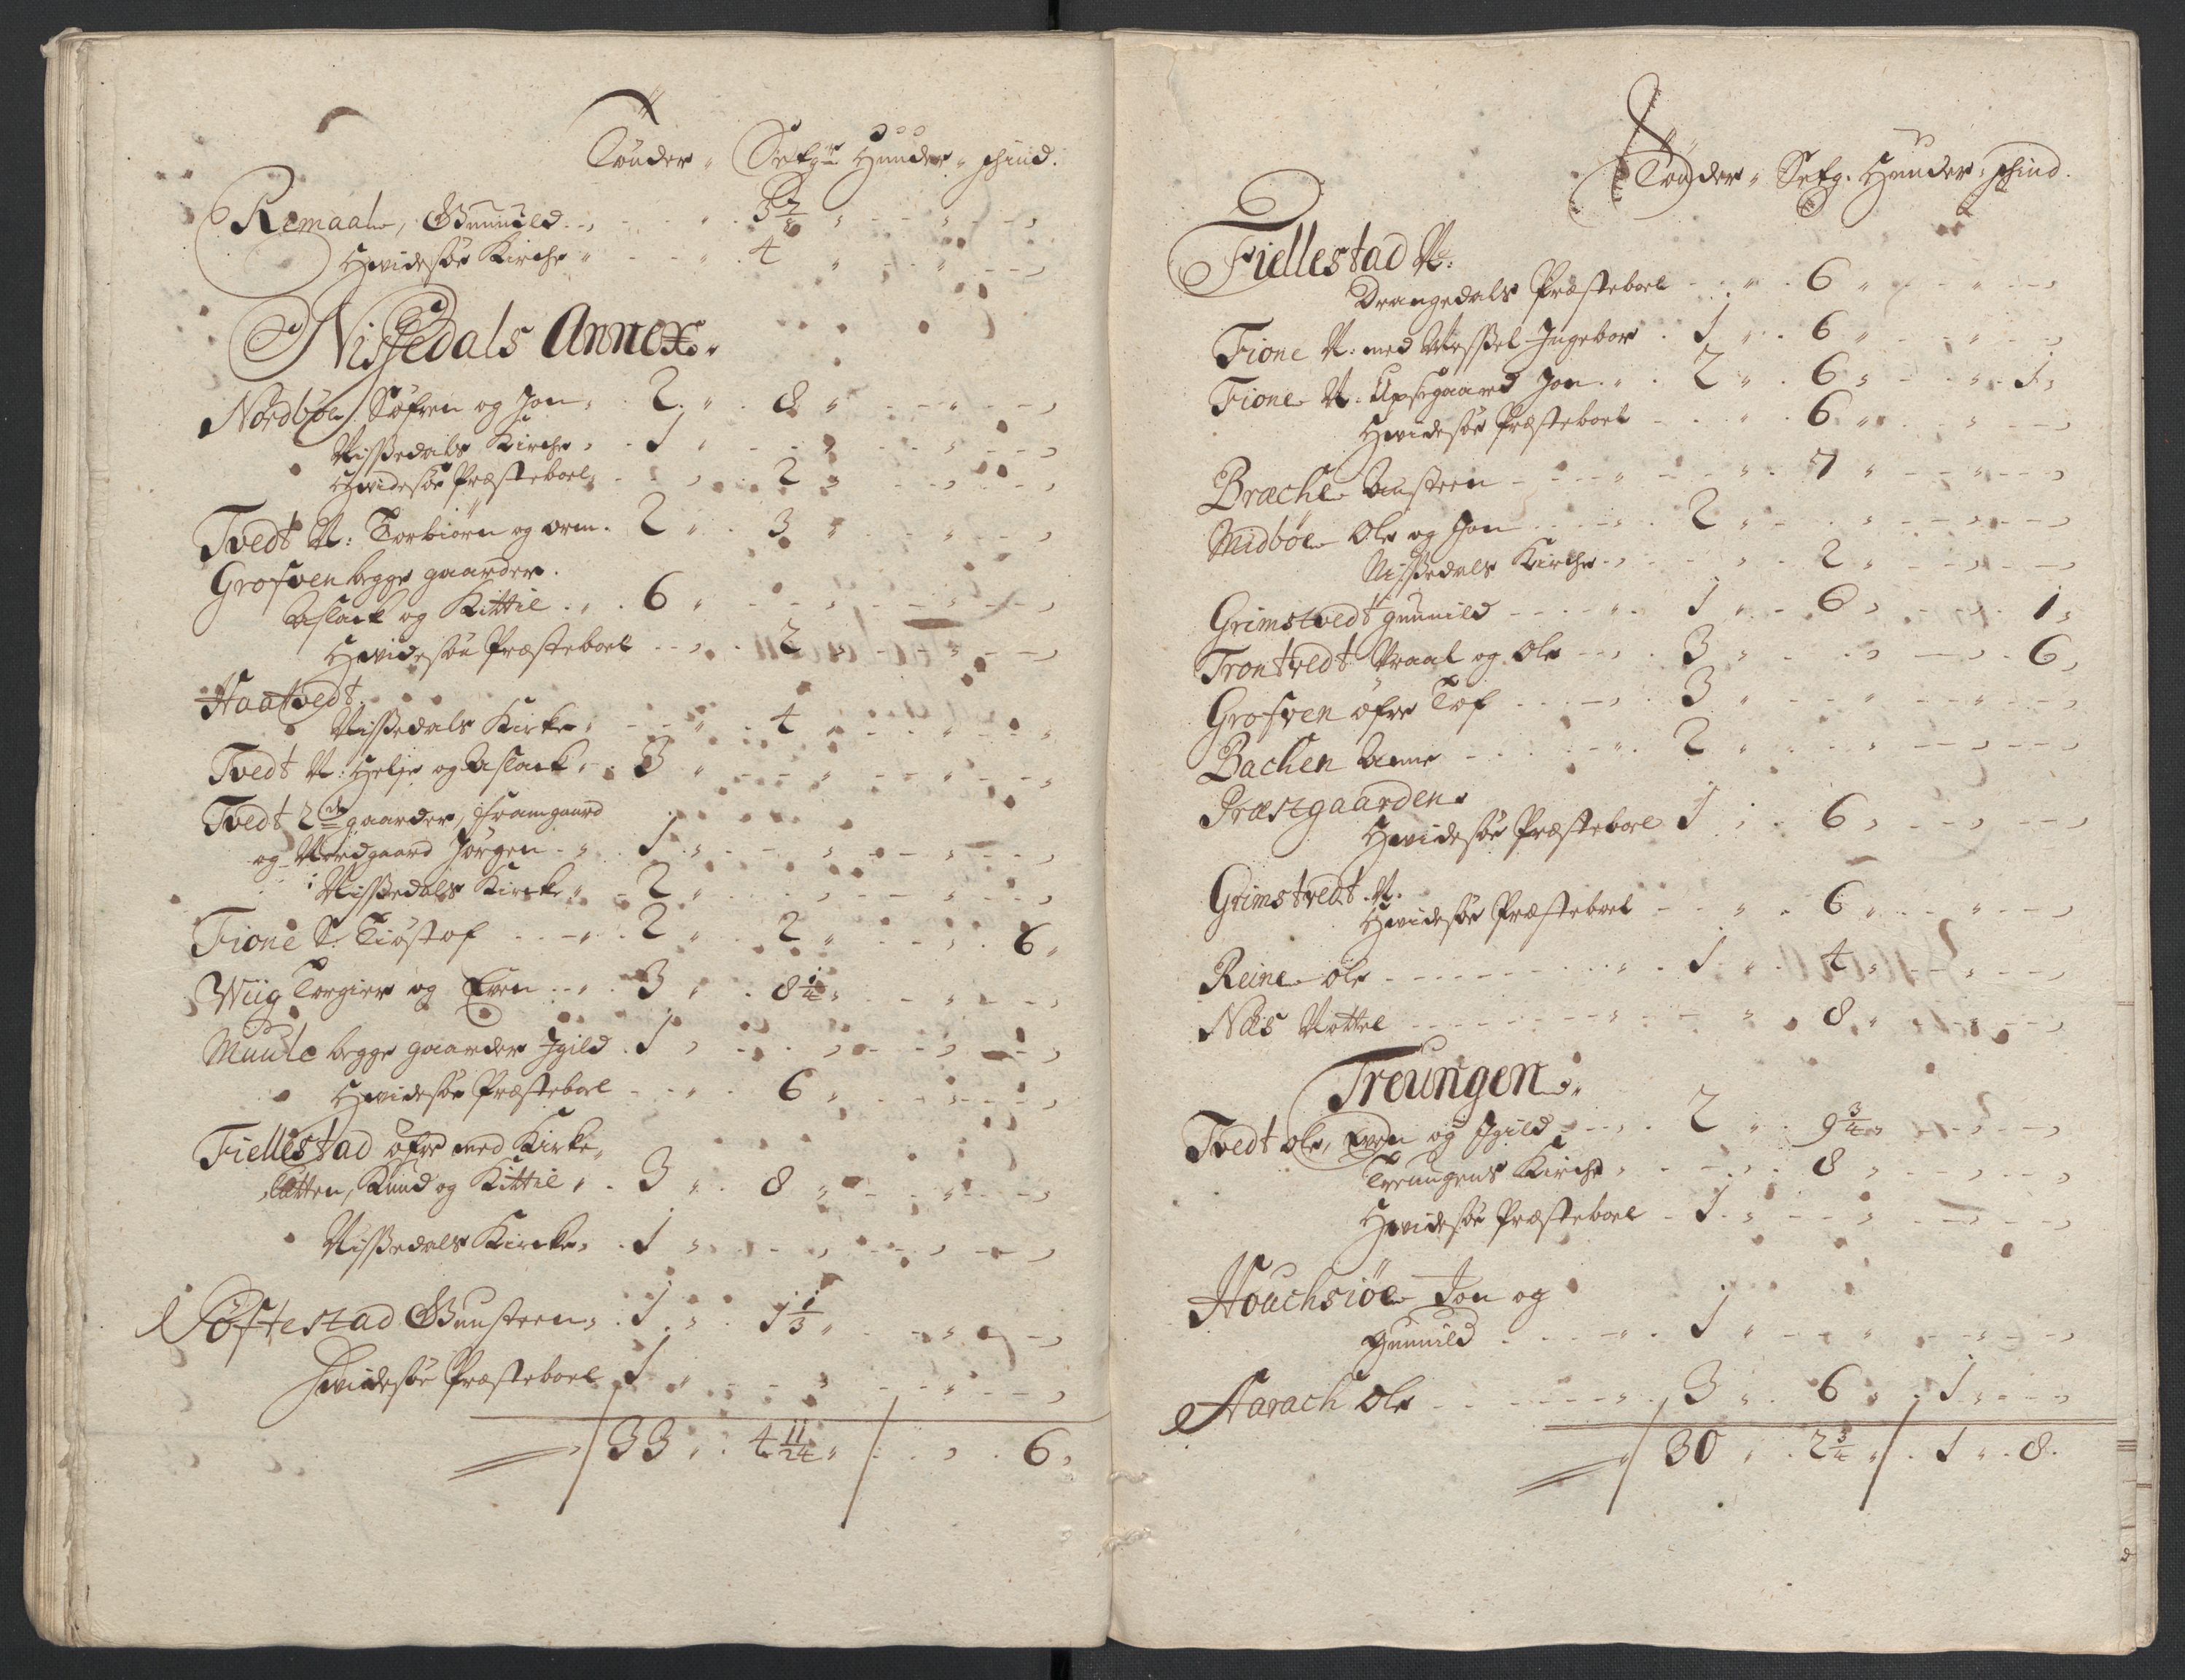 Tønder " Setg: Huuder " schind.
Remaal, Gunnild 3 7/8
Hvidesøe Kirche 4
Nissedals Annex.
Nordbøe, Søfren og Jon 2 8
Nissedals Kirche 1
Hvidesøe Præsteboel 2
Tvedt N: Torbiørn og orm 2 3
Grofven begge gaarder.
Aslack og Kittil 6
Hvidesøe Præsteboel 2
Haatvedt.
Nissedals Kirke 4
Tvedt N: Helje og Aslack 3
Tvedt 2de gaarder, framgaard
og Nordgaard Jørgen 1
Nissedals Kircke 2
Fione S. Tiøstof 2 2 6
Wiig Torgier og Even 3 8 1/4
Muule begge gaarder Igild 1
Hvidesøe Præsteboel 6
Fiellestad øfre med Kirke
Knud og Kittil 3 8
Nissedals Kircke 1
Tøftestad Gunsteen 1 1 1/3
Hvidesøe Præsteboel 1
33 4 11/24 6
Tønder " Setg. Huuder " schind.
Fiellestad N:
Drangedals Præsteboel 6
Fione N: med Nessel Ingebor 1 6
Fione N: Upsegaard Jon 2 6 1
Hvidesøe Præsteboel 6
Brache Austeen 7
Midbøe Ole og Jon 2
Nissedals Kirche 2
Grimstvedt gunnild 1 6 1
Trontvedt Vraal og Ole 3 6
Grofven øfre Tof 3
Bachen Anne 2
Præstgaarden
Hvidesøe Præsteboel 1 6
Grimstvedt N.
Hvidesøe Præsteboel 6
Reine ole 1 4
Næs Nottel 8
Treungen
Tvedt ole, Even og Igild 2 9 3/4
Treungens Kirche 8
Hvidesøe Præsteboel 1
Houchsiøe Jon og
gunnild 1
Aarach Ole 3 6 1
30 2 3/4 1 8